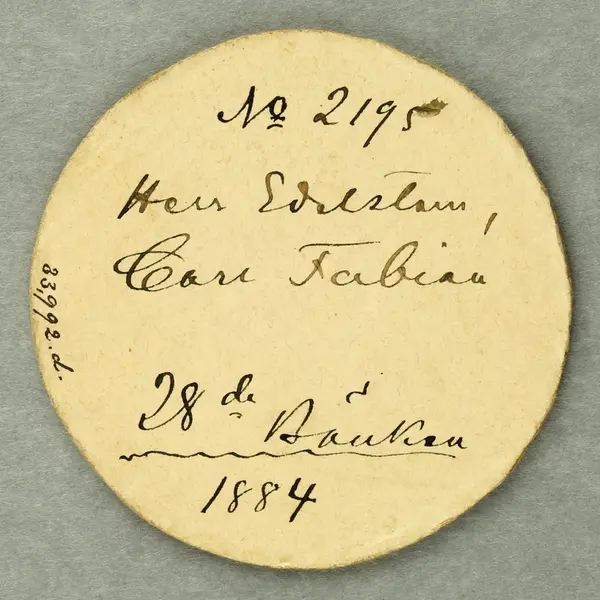 No 2195
Herr Edelstam,
Carl Fabian
28de Bänken
1884
83,992.d.